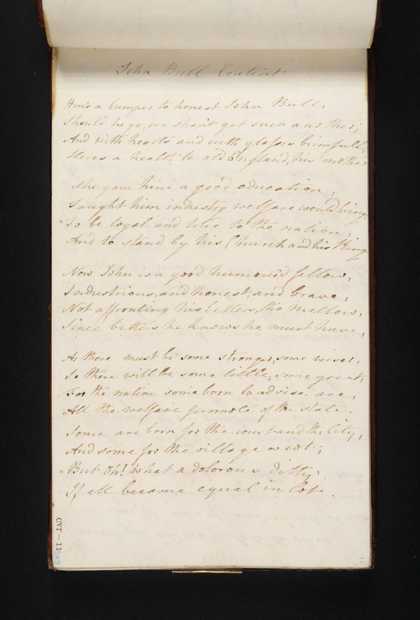 John Bull Contest
Here's a bumper to honest John Bull,
Should he go, we shan't get such another;
And with hearts and with glasses brimfull,
Here's a health to old England, his mother
She gave him a good education,
Taught him industry welfare would bring,
To be loyal and true to the nation,
And to stand by his Church and his King
Now John is a good humour'd fellow,
Industrious, and honest, and brave,
Not affronting his betters, tho' mellow,
Since betters he knows he must have,
As there must be some stronger, some
So there will be some little, some great,
For the nation some born to advise are,
All the welfare promote of the state.
Some are born for the court and the City,
And some for the village or cot;
But Oh! what a dolorous ditty,
If all became equal in lot.